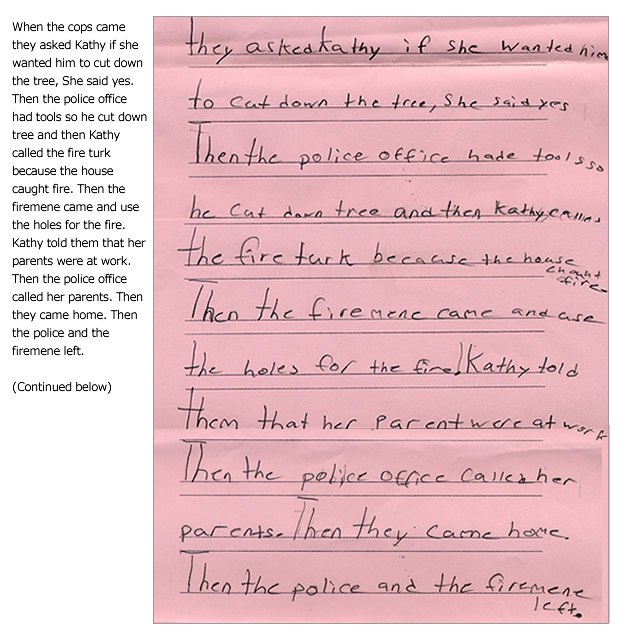 When the cops came
they asked Kathy if she
wanted him to cut down
the tree, She said yes.
Then the police office
had tools so he cut down
tree and then Kathy
called the fire turk
because the house
caught fire. Then the
firemene came and use
the holes for the fire.
Kathy told them that her
parents were at work.
Then the police office
called her parents. Then
they came home. Then
the police and the
firemene left.
(Continued below)
they asked Kathy if she wanted him
to cut down the tree, She said yes
Then the police office hade tools so
he cut down tree and then Kathy called
the fire turk because the house
chaunt
fire.
Then the firemene came and use
the holes for the fire. Kathy told
them that her parent were at work
Then the police office called her
parents. Then they came home.
Then the police and the firemene
left.